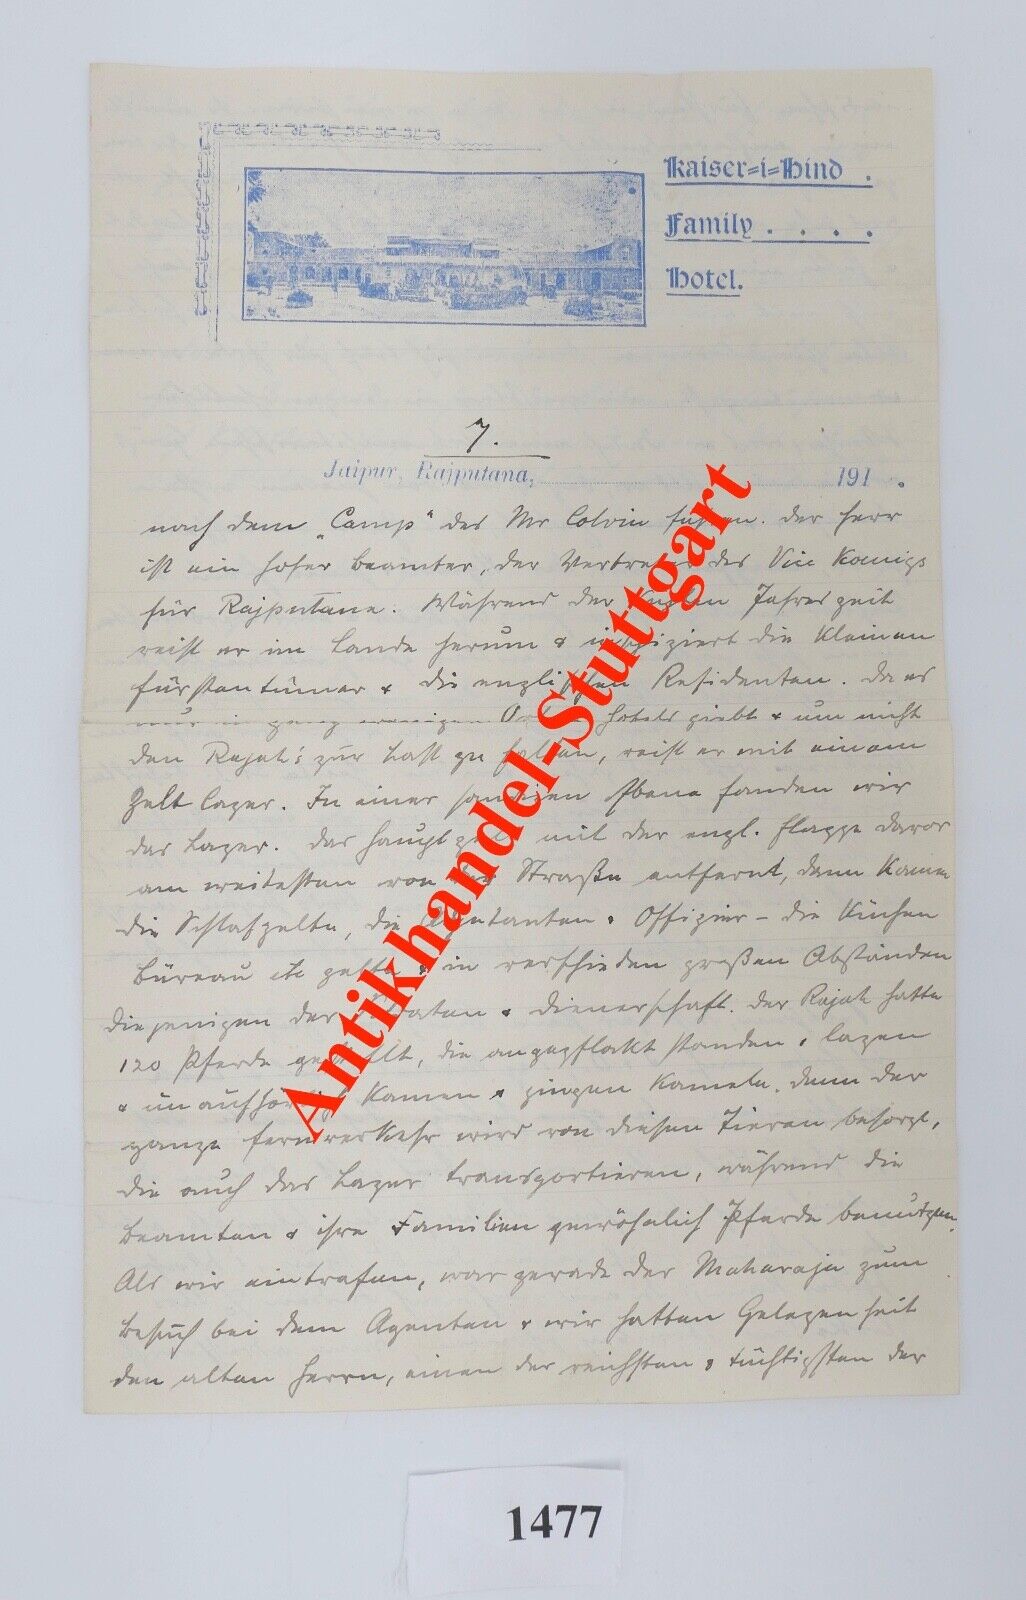 Kaiser-i-Hind .
Family . . . .
Hotel.
7.
Jaipur, Rajputana, 191 .
nach dem „Camp“ des Mr Colvin fuhren. Der Herr
ist ein hoher Beamter, der Vertreter des Vice Königs
für Rajputana. Während der kühlen Jahreszeit
reist er im Lande herum & inspiziert die kleinen
Fürstentümer & die englischen Residenten. Da es
nur in ganz wenigen Orten Hotels giebt & um nicht
den Rajah's zur Last zu fallen, reist er mit einem
Zeltlager. In einer sandigen Ebene fanden wir
das Lager. Das Hauptzelt mit der engl. Flagge davor
am weitesten von der Straße entfernt, dann kamen
die Schlafzelte, die Adjutanten & Offizier - die Küchen
Büreau etc zelte & in verschieden großen Abständen
diejenigen der Soldaten & Dienerschaft. Der Rajah hatte
120 Pferde gestellt, die angepflokt standen & lagen
& unaufhörlich kamen & gingen Kamele. Denn der
ganze Fernverkehr wird von diesen Tieren besorgt,
die auch das Lager transportieren, während die
Beamten & ihre Familien gewöhnlich Pferde benutzen.
Als wir eintrafen, war gerade der Maharaja zum
Besuch bei dem Agenten & wir hatten Gelegenheit
den alten Herrn, einen der reichsten & tüchtigsten der
Antikhandel-Stuttgart
1477